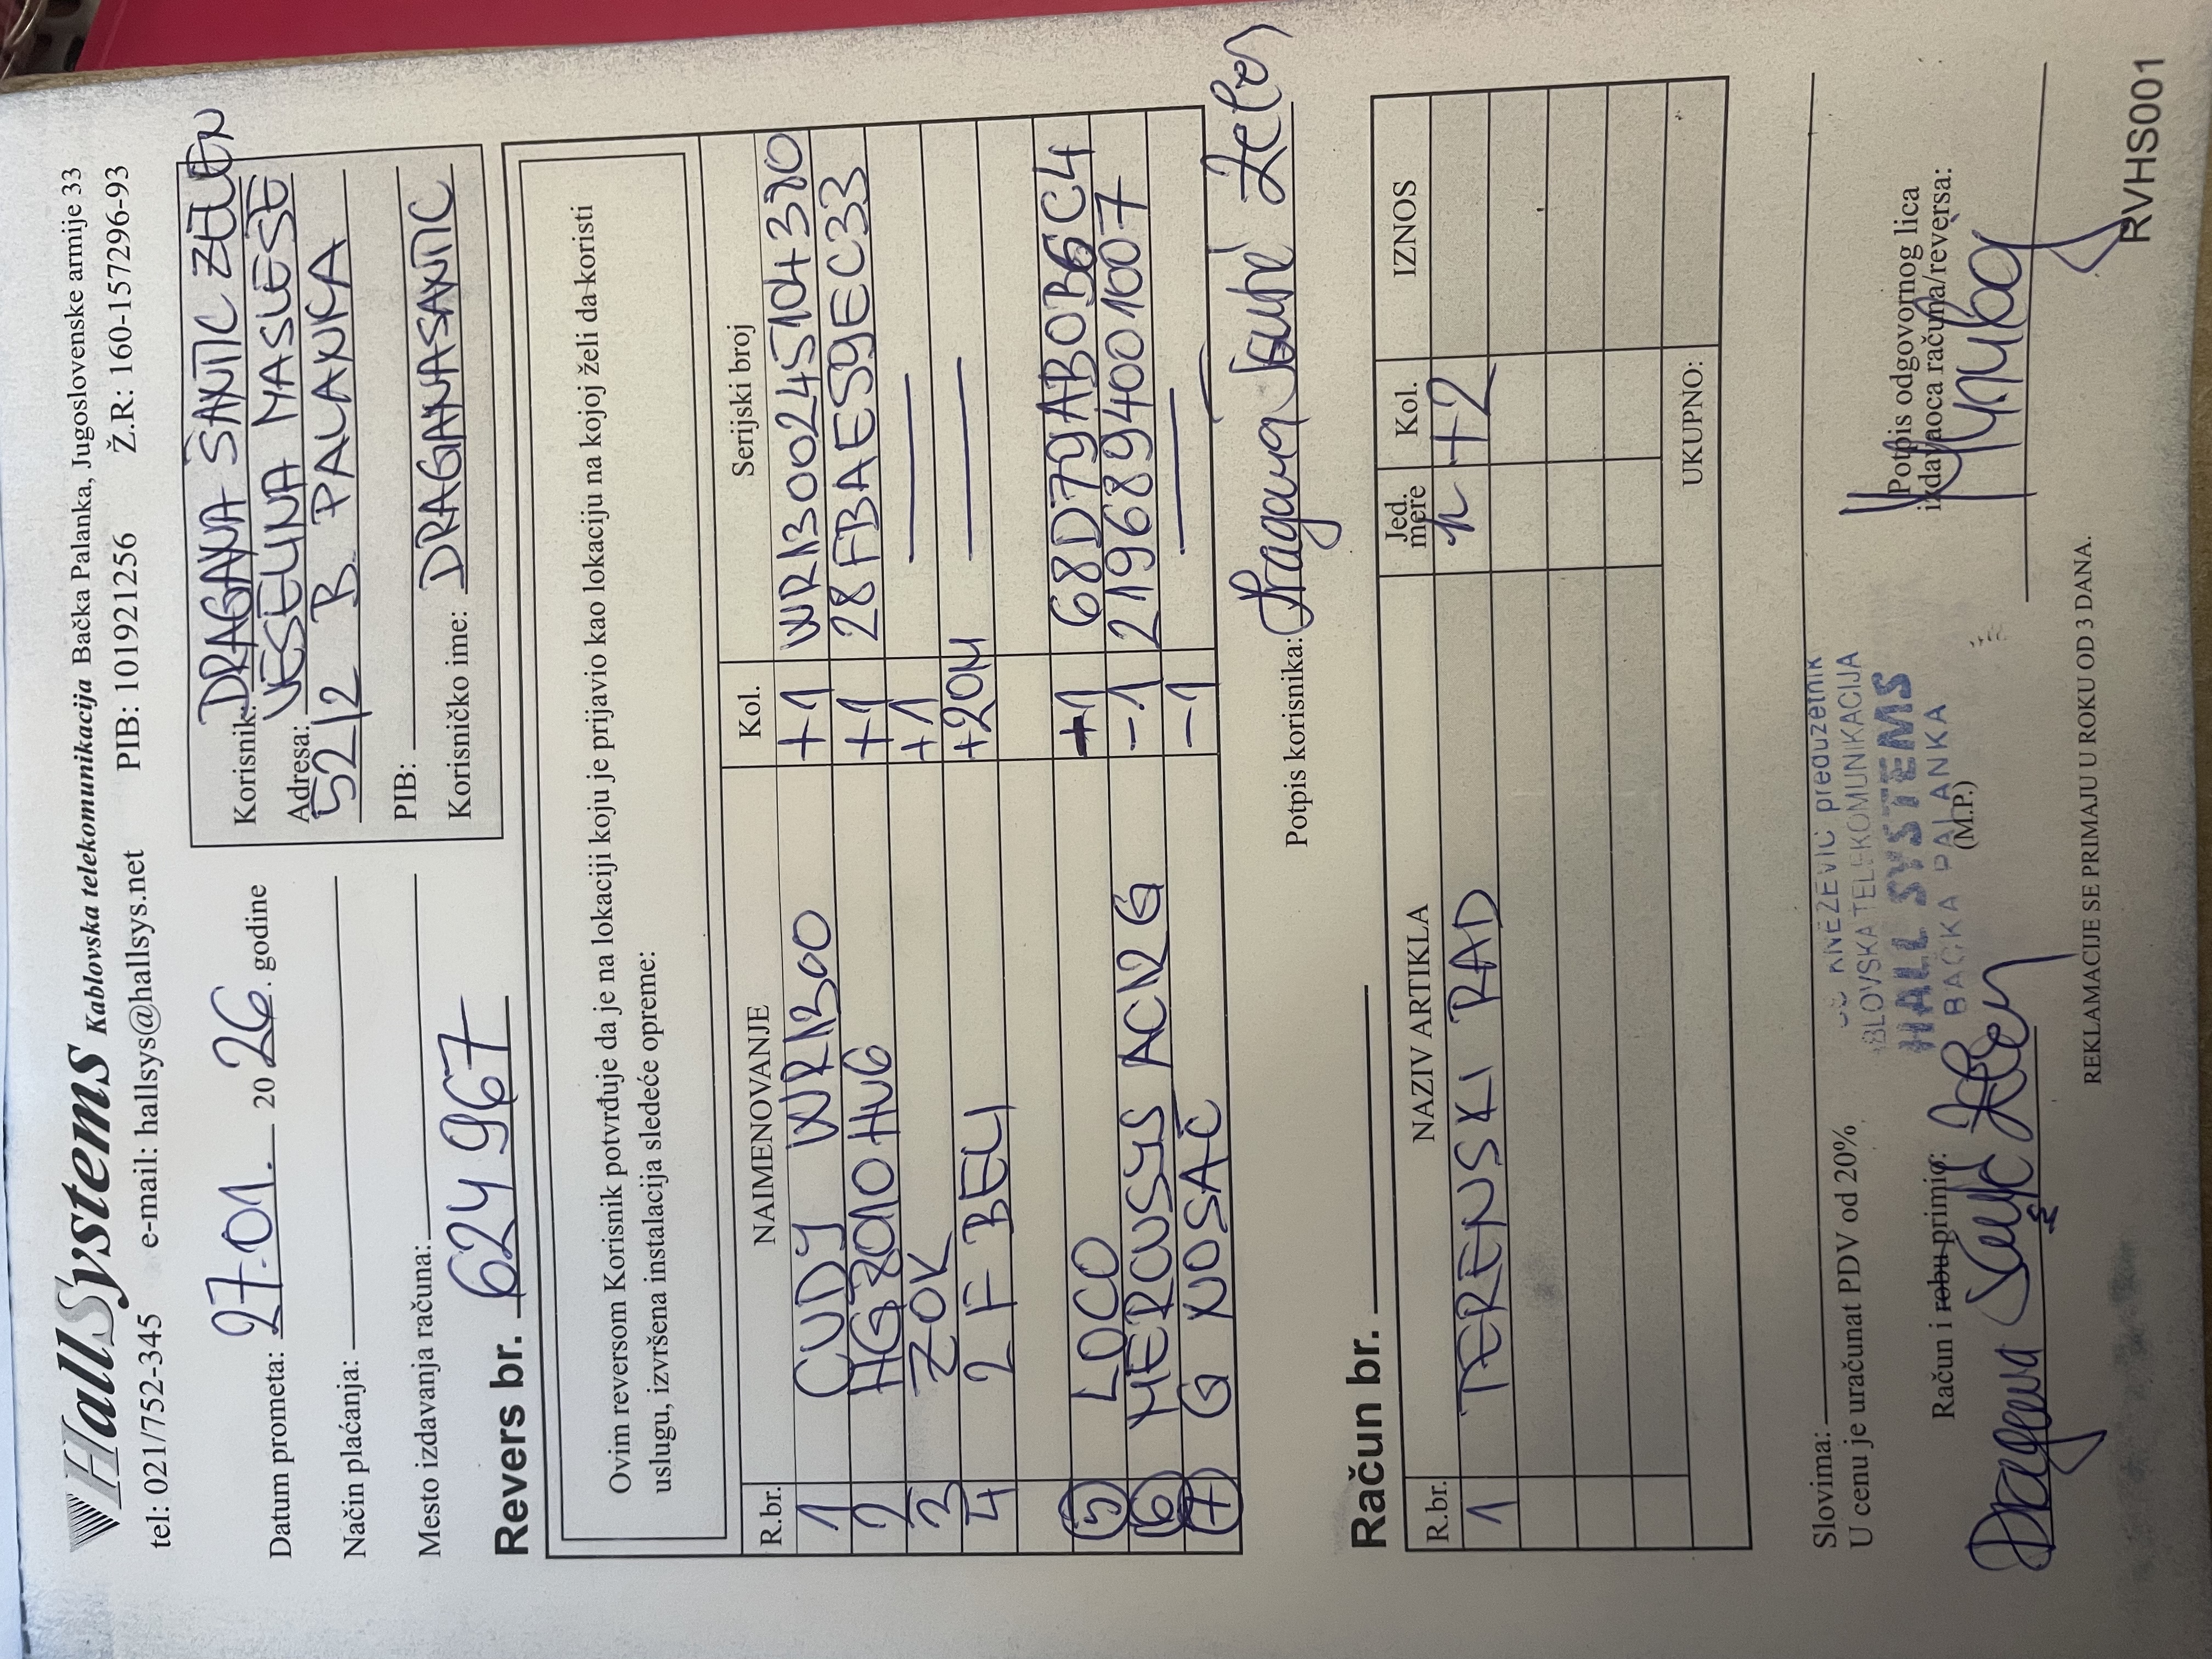 HallSystems Kablovska telekomunikacija Bačka Palanka, Jugoslovenske armije 33
tel: 021/752-345 e-mail: hallsys@hallsys.net PIB: 101921256 Ž.R: 160-157296-93
Datum prometa: 27.01. 2026. godine
Način plaćanja:
Mesto izdavanja računa:
Korisnik: DRAGANA ŠANTIĆ ZELEN
Adresa: VESELINA MASLEŠE
52/2 B. PALANKA
PIB:
Korisničko ime: DRAGANASANTIC
Revers br. 624967
Ovim reversom Korisnik potvrđuje da je na lokaciji koju je prijavio kao lokaciju na kojoj želi da koristi
uslugu, izvršena instalacija sledeće opreme:
R.br. NAIMENOVANJE Kol. Serijski broj
1 CUDY WR1300 +1 WR1300245104320
2 HG8010HV6 +1 28FBAE59EC33
3 ZOK +1
4 2F BELI +20M
5 LOCO +1 68D79AB0B6C4
6 MERCUSYS AC12G -1 2196894001007
7 G NOSAČ -1
Potpis korisnika: Dragana Šantić Zelen
Račun br.
R.br. NAZIV ARTIKLA Jed. mere Kol. IZNOS
1 TERENSKI RAD h +2
UKUPNO:
Slovima:
U cenu je uračunat PDV od 20%
KNEŽEVIĆ preduzetnik
BLOVSKA TELEKOMUNIKACIJA
HALL SYSTEMS
BAČKA PALANKA
(M.P.)
Račun i robu primio:
Dragana Šantić Zelen
Potpis odgovornog lica
izdavaoca računa/reversa:
REKLAMACIJE SE PRIMAJU U ROKU OD 3 DANA.
RVHS001